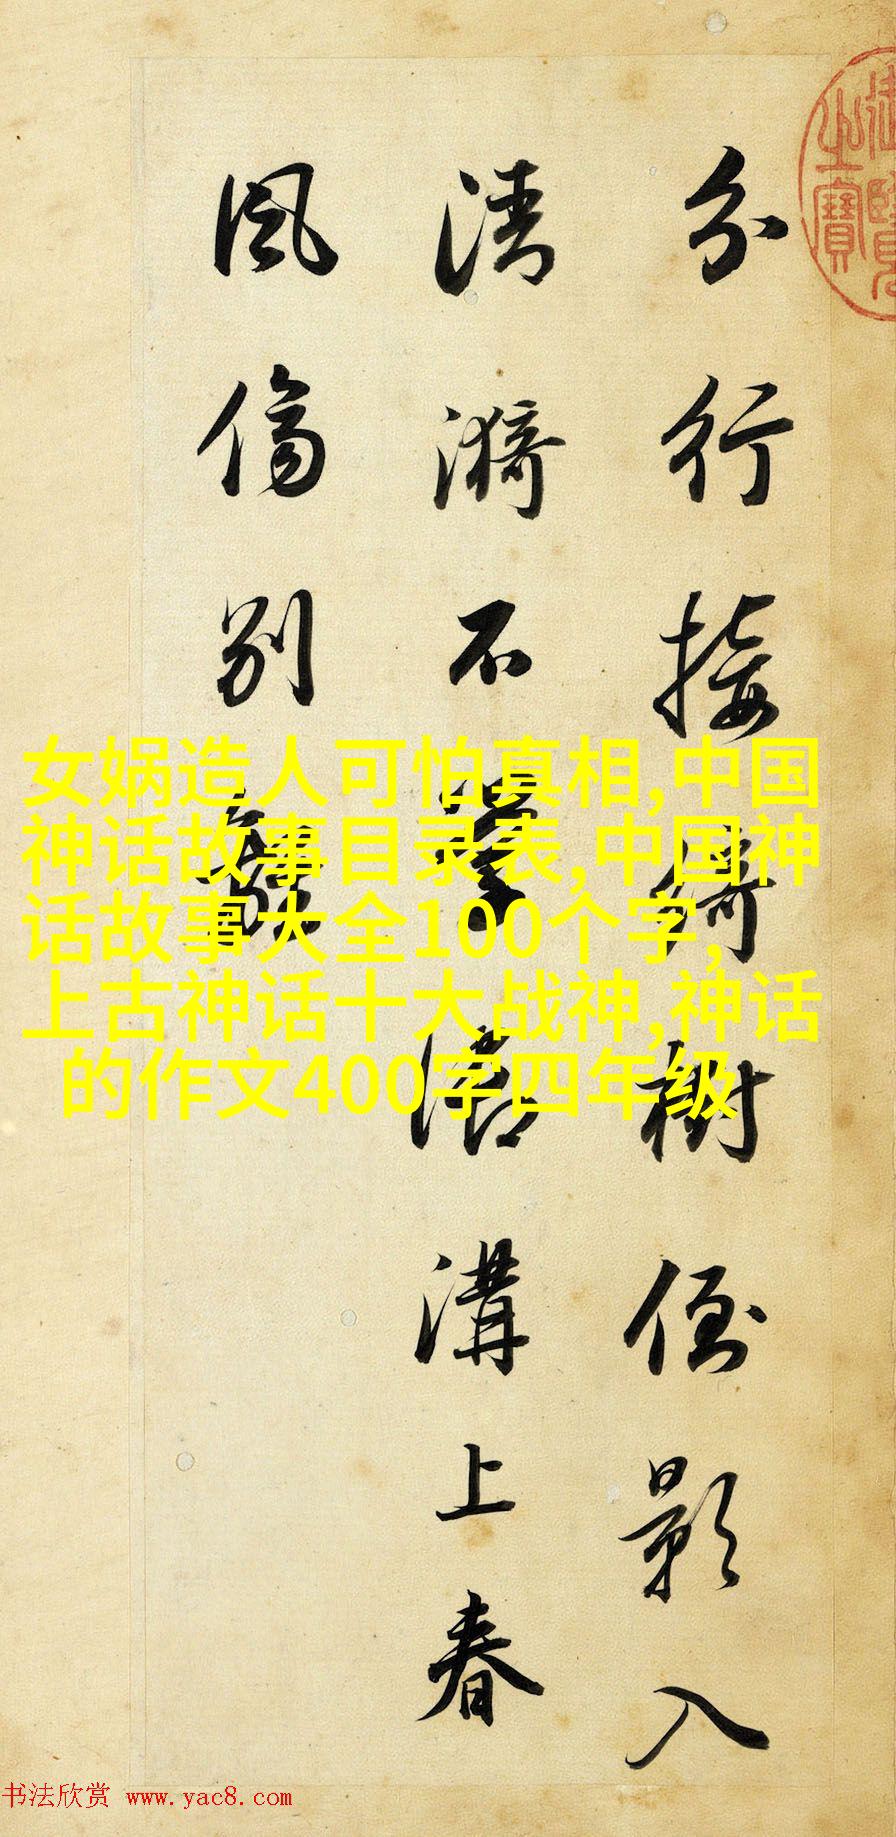 御覽之寶
分行接綺樹倒影入
清漪不學御溝上春
風傷別離
女娲造人可怕真相,中国
神话故事目录表,中国神
话故事大全100个字,
上古神话十大战神,神话
的作文400字四年级
书法欣赏 www.yac8.com